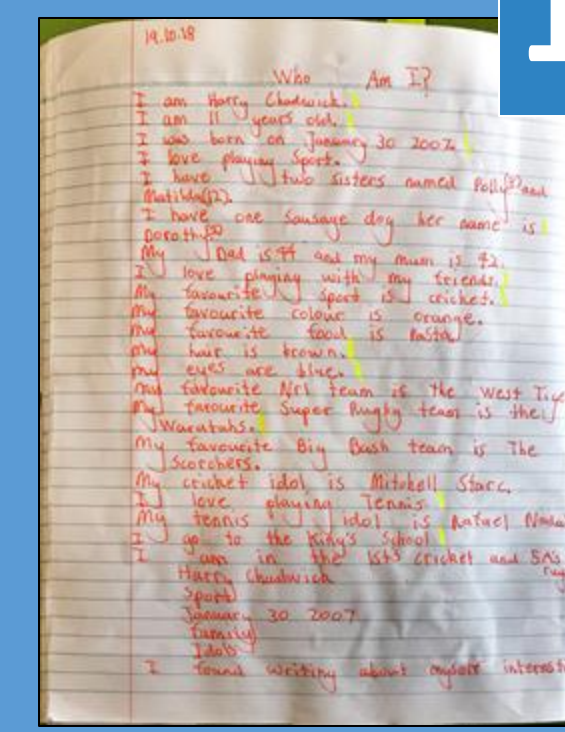 19.10.18
Who Am I?
I am Harry Chadwick.
I am 11 years old.
I was born on January 30 2007.
I love playing Sport.
I have two sisters named Polly and
Matilda(12).
I have one Sausage dog her name is
Dorothy
My Dad is 44 and my mum is 42.
I love playing with my friends.
My favourite sport is cricket.
My favourite colour is orange.
My favourite food is Pasta
My hair is brown.
My eyes are blue.
My favourite Nrl team is the West
My favourite Super Rugby team is the
Waratahs.
My favourite Big Bash team is The
Scorchers.
My cricket idol is Mitchell Starc.
I love playing Tennis
My tennis idol is Rafael
I go to the King's School
I am in the cricket and
Harry Chadwick
Sport
January 30 2007
family
Idols
I found writing about myself